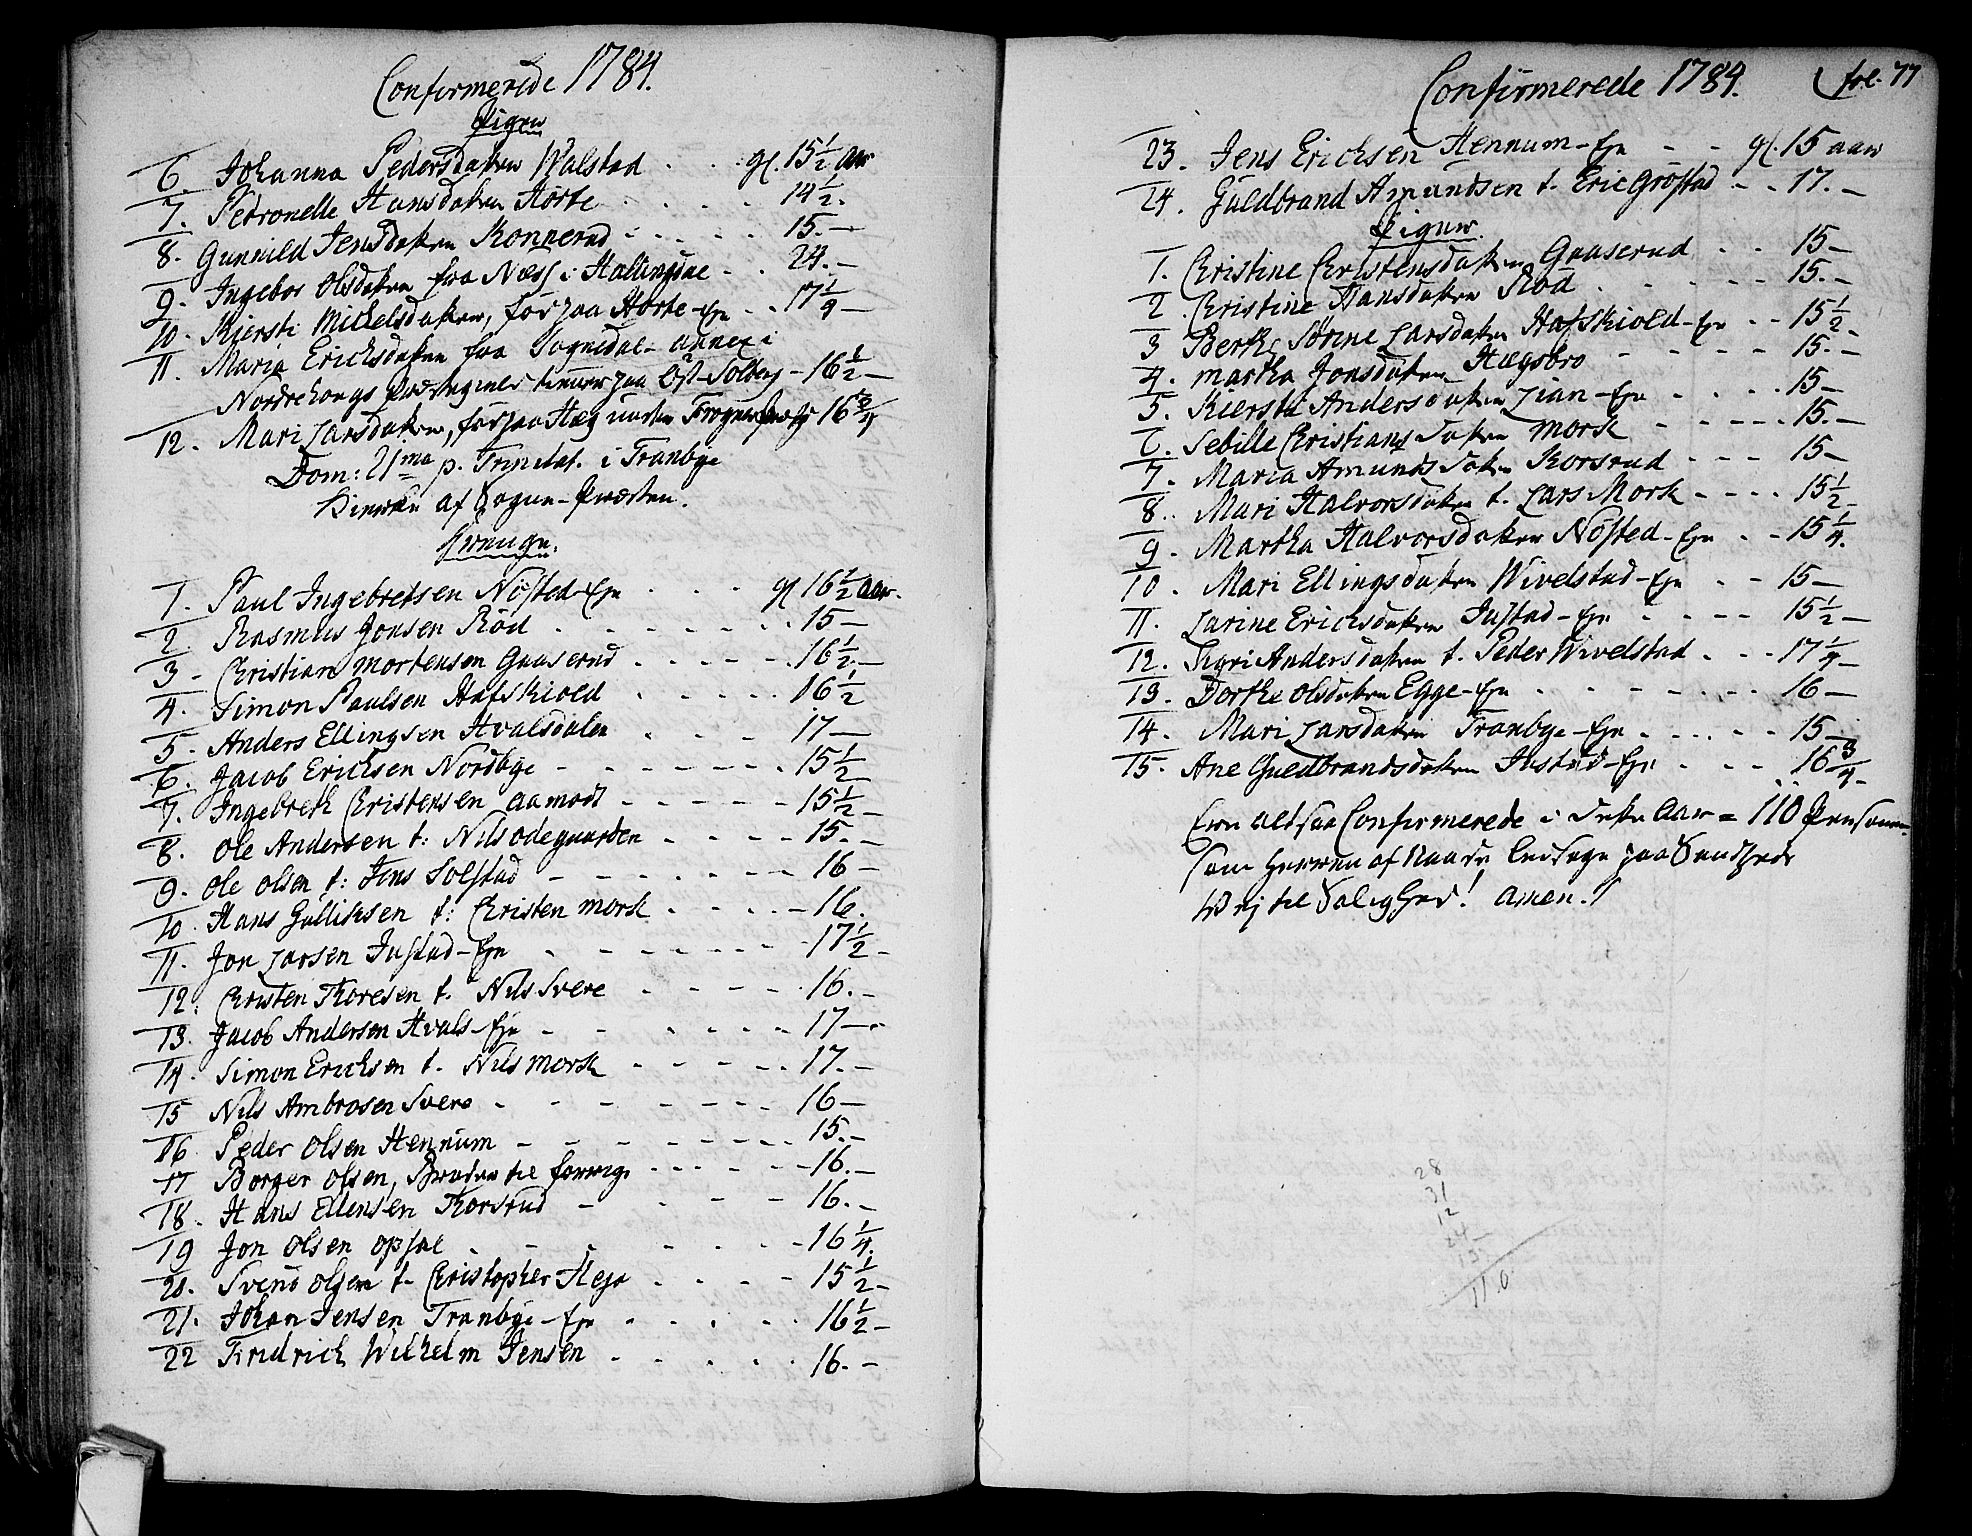 Confirmerede 1784.
Piger
6. Johanna Pedersdatter Walstad . . . gl. 15 1/2 aar
7. Pedronelle Hansdatter Hørte . . . . 14 1/2.
8. Gunnild Jensdatter Konnerud . . . . . 15.—
9. Ingebor Olsdatter fra Næss i Hallingdal - . . 24.—
10. Kiersti Mickelsdatter, før paa Hørte-eje . . 17 1/4 —
11. Maria Ericksdatter fra Sognedal annex i
Nordrehougs Præstegield tienner paa Øst-Solberg — 16 1/2 —
12. Mari Larsdatter, før paa Hæg under Frogner 16 3/4
Dom: 21ma p. Trinitat. i Tranbye
Kirke af Sogne-Præsten.
Drenge.
1. Paul Ingebretsen Nøsted-eje . . . gl 16 1/2 aar.
2 Rasmus Jonsen Rød . . . . . . . 15 —
3 - Christian Mortensen Gaaserud . . . . - 16 1/2.—
4. Simon Paulsen Hafskiold . . . . . 16 1/2
5. Anders Ellingsen Hvalsdalen . . - 17 —
6. Jacob Ericksen Nordbye - - - - - - - 15 1/2
7. Ingebreth Christensen Aamodt - - - - - 15 1/2 —
8. Ole Andersen t: Nils Odegaarden - - - - 15.—
9. Ole Olsen t: Jens Solstad - - - - - - - 16 —
10. Hans Gulliksen t: Christen Mørk . . . . - 16.
11. Jon Larsen Justad-eje . - - - - - - 17 1/2 -
12. Christen Thoresen t. Nils Svere - - - - - 16. -
13. Jacob Andersen Hvals-eje - - - - - - 17 —
14. Simon Ericksen t. Nils Mørk - - - - - 17.—
15 Nils Ambrosen Svere - - - - - - - - 16 —
16. Peder Olsen Hennum - - - - - - - - 15.—
17 Borger Olsen, Broder til forrige - - - - - 16.—
18. Hans Ellensen Thorsrud - - - - 16.—
19 Jon Olsen Opsal . - - . - - - - 16 1/4.
20. Svend Olsen t. Christopher Hegg . . . - 15 1/2 -
21. Johan Jensen Tranbye-eje . . . . . 16 1/2 -
22 Fridrich Wilhelm Jensen . . . . . 16. -
Confirmerede 1784. fol. 77
23. Jens Ericksen Hennum-eje - - gl. 15 aar
24. Guldbrand Amundsen t. Eric Grøstad - . 17.—
Piger.
1. Christine Christensdatter Gaaserud . . 15 —
2. Christine Hansdatter Rød . . . . . 15.—
3 Berthe Sørine Larsdatter Hafskiold-eje - - 15 1/2 -
4. Martha Jonsdatter Hægsbro - - - - - 15.—
5. Kiersti Andersdatter Lian-eje . . . . 15 —
6. Sebille Christiansdatter Mørk - - - - - 15.—
7. Maria Amundsdatter Korsrud - - - 15 —
8. Mari Halvorsdatter t. Lars Mørk - - - - 15 1/2 -
9. Martha Halvorsdatter Nøsted-eje . - 15 1/4.
10. Mari Ellingsdatter Wivelstad-eje - - 15 —
11. Larine Ericksdatter Justad-eje . - - - 15 1/2 —
12. Sigri Andersdatter t. Peder Wivelstad . . . 17 1/4 -
13. Dorthe Olsdatter Egge-eje . . - - - - - 16 —
14. Mari Larsdatter Tranbye-eje . . . . . 15 —
15. Ane Guldbrandsdatter Justad-eje . . . 16 3/4 -
Ere altsaa Confirmerede i dette Aar = 110 Personer
som Herren af Naade ledsage paa Sandheds
Vej til Salighed! Amen.
28
31
12
24
15
110